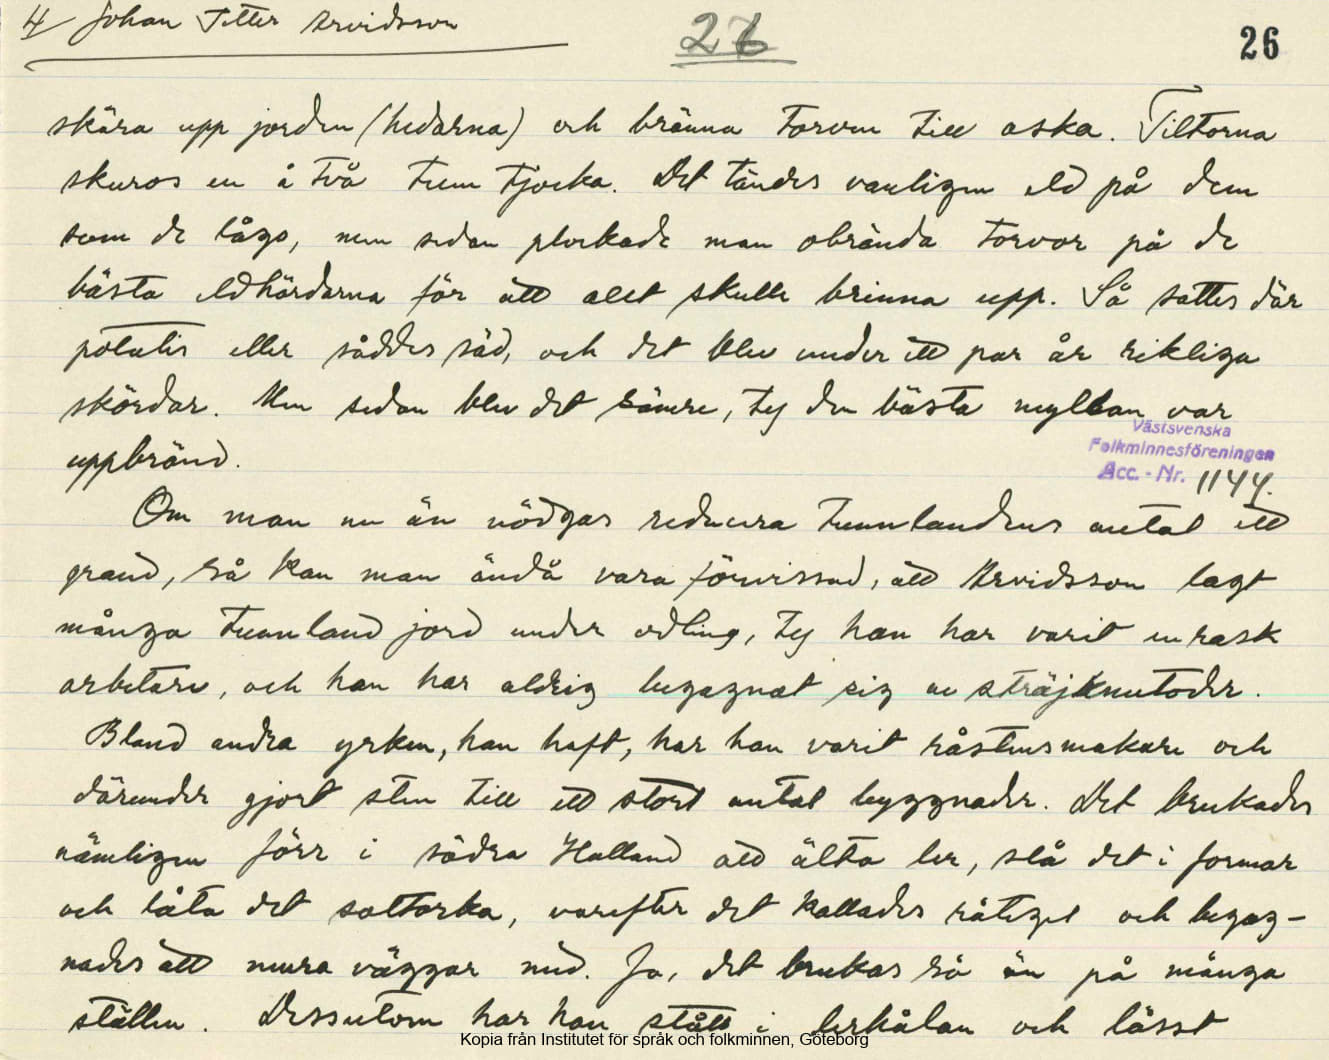 4/ Johan Petter Arvidsson
26
26
skära upp jorden (hedarna) och bränna torven till aska. Tiltorna
skuros en å två tum tjocka. Det tändes vanligen eld på dem
som de lågo, men sedan plockade man obrända torvor på de
bästa eldhärdarna för att alet skulle brinna upp. Så sattes där
potatis eller såddes säd, och det blev under ett par år rikliga
skördar. Men sedan blev det sämre, ty den bästa myllan var
uppbränd.
Västsvenska
Folkminnesföreningen
Acc. - Nr. 1144.
Om man nu än nödgas reducera tunnlandens antal ett
grand, så kan man ändå vara förvissad, att Arvidsson lagt
många tunnland jord under odling, ty han har varit en rask
arbetare, och han har aldrig begagnat sig av sträjkmetoder.
Bland andra yrken, han haft, har han varit råstensmakare och
därunder gjort sten till ett stort antal byggnader. Det brukades
nämligen förr i södra Halland att älta ler, slå det i formar
och låta det soltorka, varefter det kallades råtegel och begag-
nades att mura väggar med. Ja, det brukas så än på många
ställen. Dessutom har han stått i lerkålan och lässt
Kopia från Institutet för språk och folkminnen, Göteborg